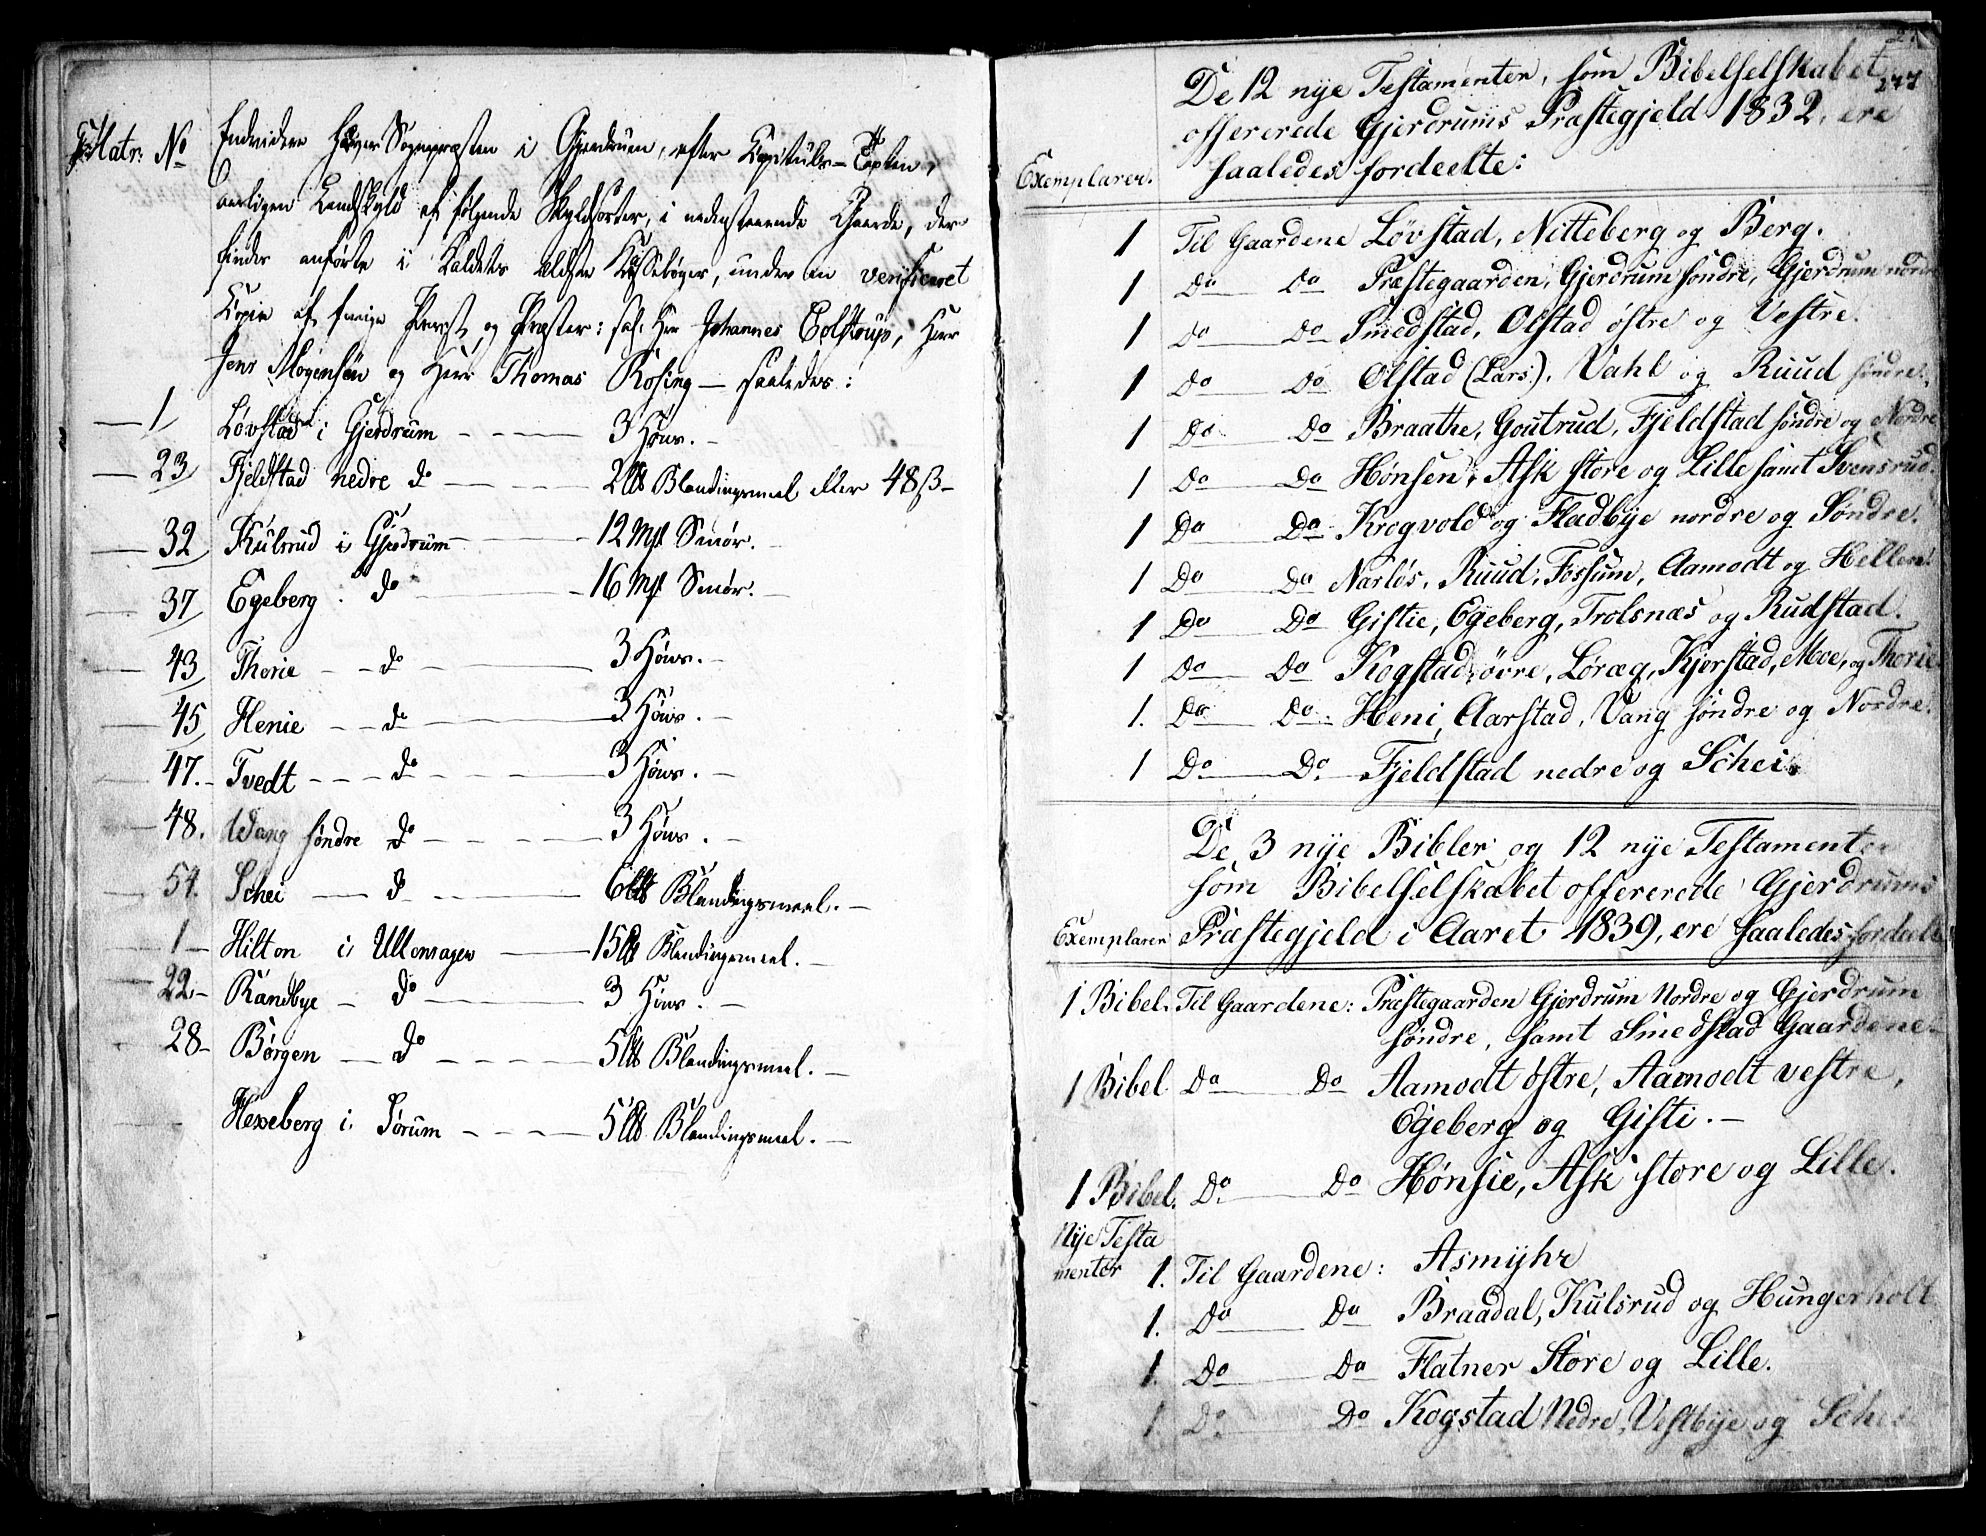 Matr: No
Endvidere haver Sognepræsten i Gjerdrum, efter Kapituls-Taxten,
aarligen Landskyld af følgende Skyldsorter, i nedenstaaende Gaarde, der
findes anførte i Kaldets ældste bøger, under en verificeret
Kopie af forrige Provst og Præster: sal. Herr Johannes Colstrup, Herr
Jens Mogensøn og Herr Thomas Rosing — saaledes:
1 Løvstad i Gjerdrum - - - 3 Høns. -
23 Fjeldstad nedre do - - - 2 Blandingsmeel eller 48 ß -
32 Kulsrud i Gjerdrum - - 12 Smør.
37 Egeberg do - 16 Smør.
43 Thorie - - do - 3 Høns. -
45 Henie - - do - 3 Høns. -
47. Tvedt - - - do - 3 Høns. -
48. Wang søndre do - - - 3 Høns. -
54. Schei - do - - 6 Blandingsmeel. -
1 - Hilton i Ullensager - 15 Blandingsmeel. -
22 - Randbye - do - 3 Høns. -
28 - Børgen - do - - - 5 Blandingsmeel. -
Hexeberg i Sørum - - - 5 Blandingsmeel. -
277
De 12 nye Testamenter, som Bibelselskabet
offererede Gjerdrums Præstegjeld 1832, ere
Exemplarer. saaledes fordeelte:
1 Til Gaardene Løvstad, Nitteberg og Berg.
1 Do Do Præstegaarden, Gjerdrum søndre, Gjerdrum nordre
1 Do Do Smedstad, Olstad østre og Vestre.
1 Do Do Olstad (Lars), Vahl og Ruud søndre.
1 Do Do Braathe, Goutrud, Fjeldstad søndre og Nordre
1 Do Do Hønsen, Ask store og Lille samt Svensrud.
1 Do Do Krogvold og Fladbye nordre og Søndre.
1 Do Do Narløs, Ruud, Fossum, Aamodt og Hellen.
1 Do Do Gistie, Egeberg, Trolsnæs og Rudstad.
1 Do Do Kogstad øvre, Loræg, Kjorstad, Moe, og Thorie.
1. Do Do Heni, Aarstad, Vang søndre og Nordre.
1 Do Do Fjeldstad nedre og Schei.
De 3 nye Bibler og 12 nye Testamenter
som Bibelselskabet offererede Gjerdrums
Exemplarer Præstegjeld i Aaret 1839, ere saaledes fordeelte
1 Bibel. Til Gaardene: Præstegaarden Gjerdrum Nordre og Gjerdrum
søndre, samt Smedstad Gaardene-
1 Bibel Do Do Aamodt østre, Aamodt vestre,
Egeberg og Gisti. -
1 Bibel. Do Do Hønsie, Ask store og Lille.
Nye Testa
menter 1. Til Gaardene: Asmyhr
1. Do Do Braadal, Kulsrud og Hungerholt
1. Do Do Flatner Store og Lille.
1 Do Do Kogstad Nedre, Vestbye og Schei